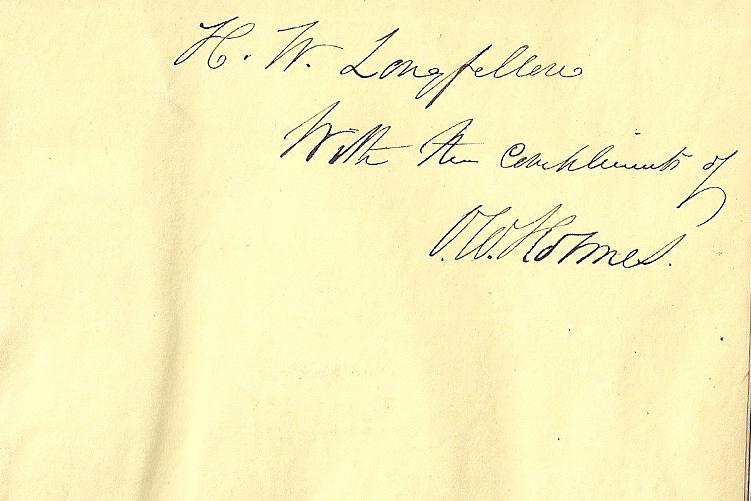 H. W. Longfellow
With the compliments of
O. W. Holmes.